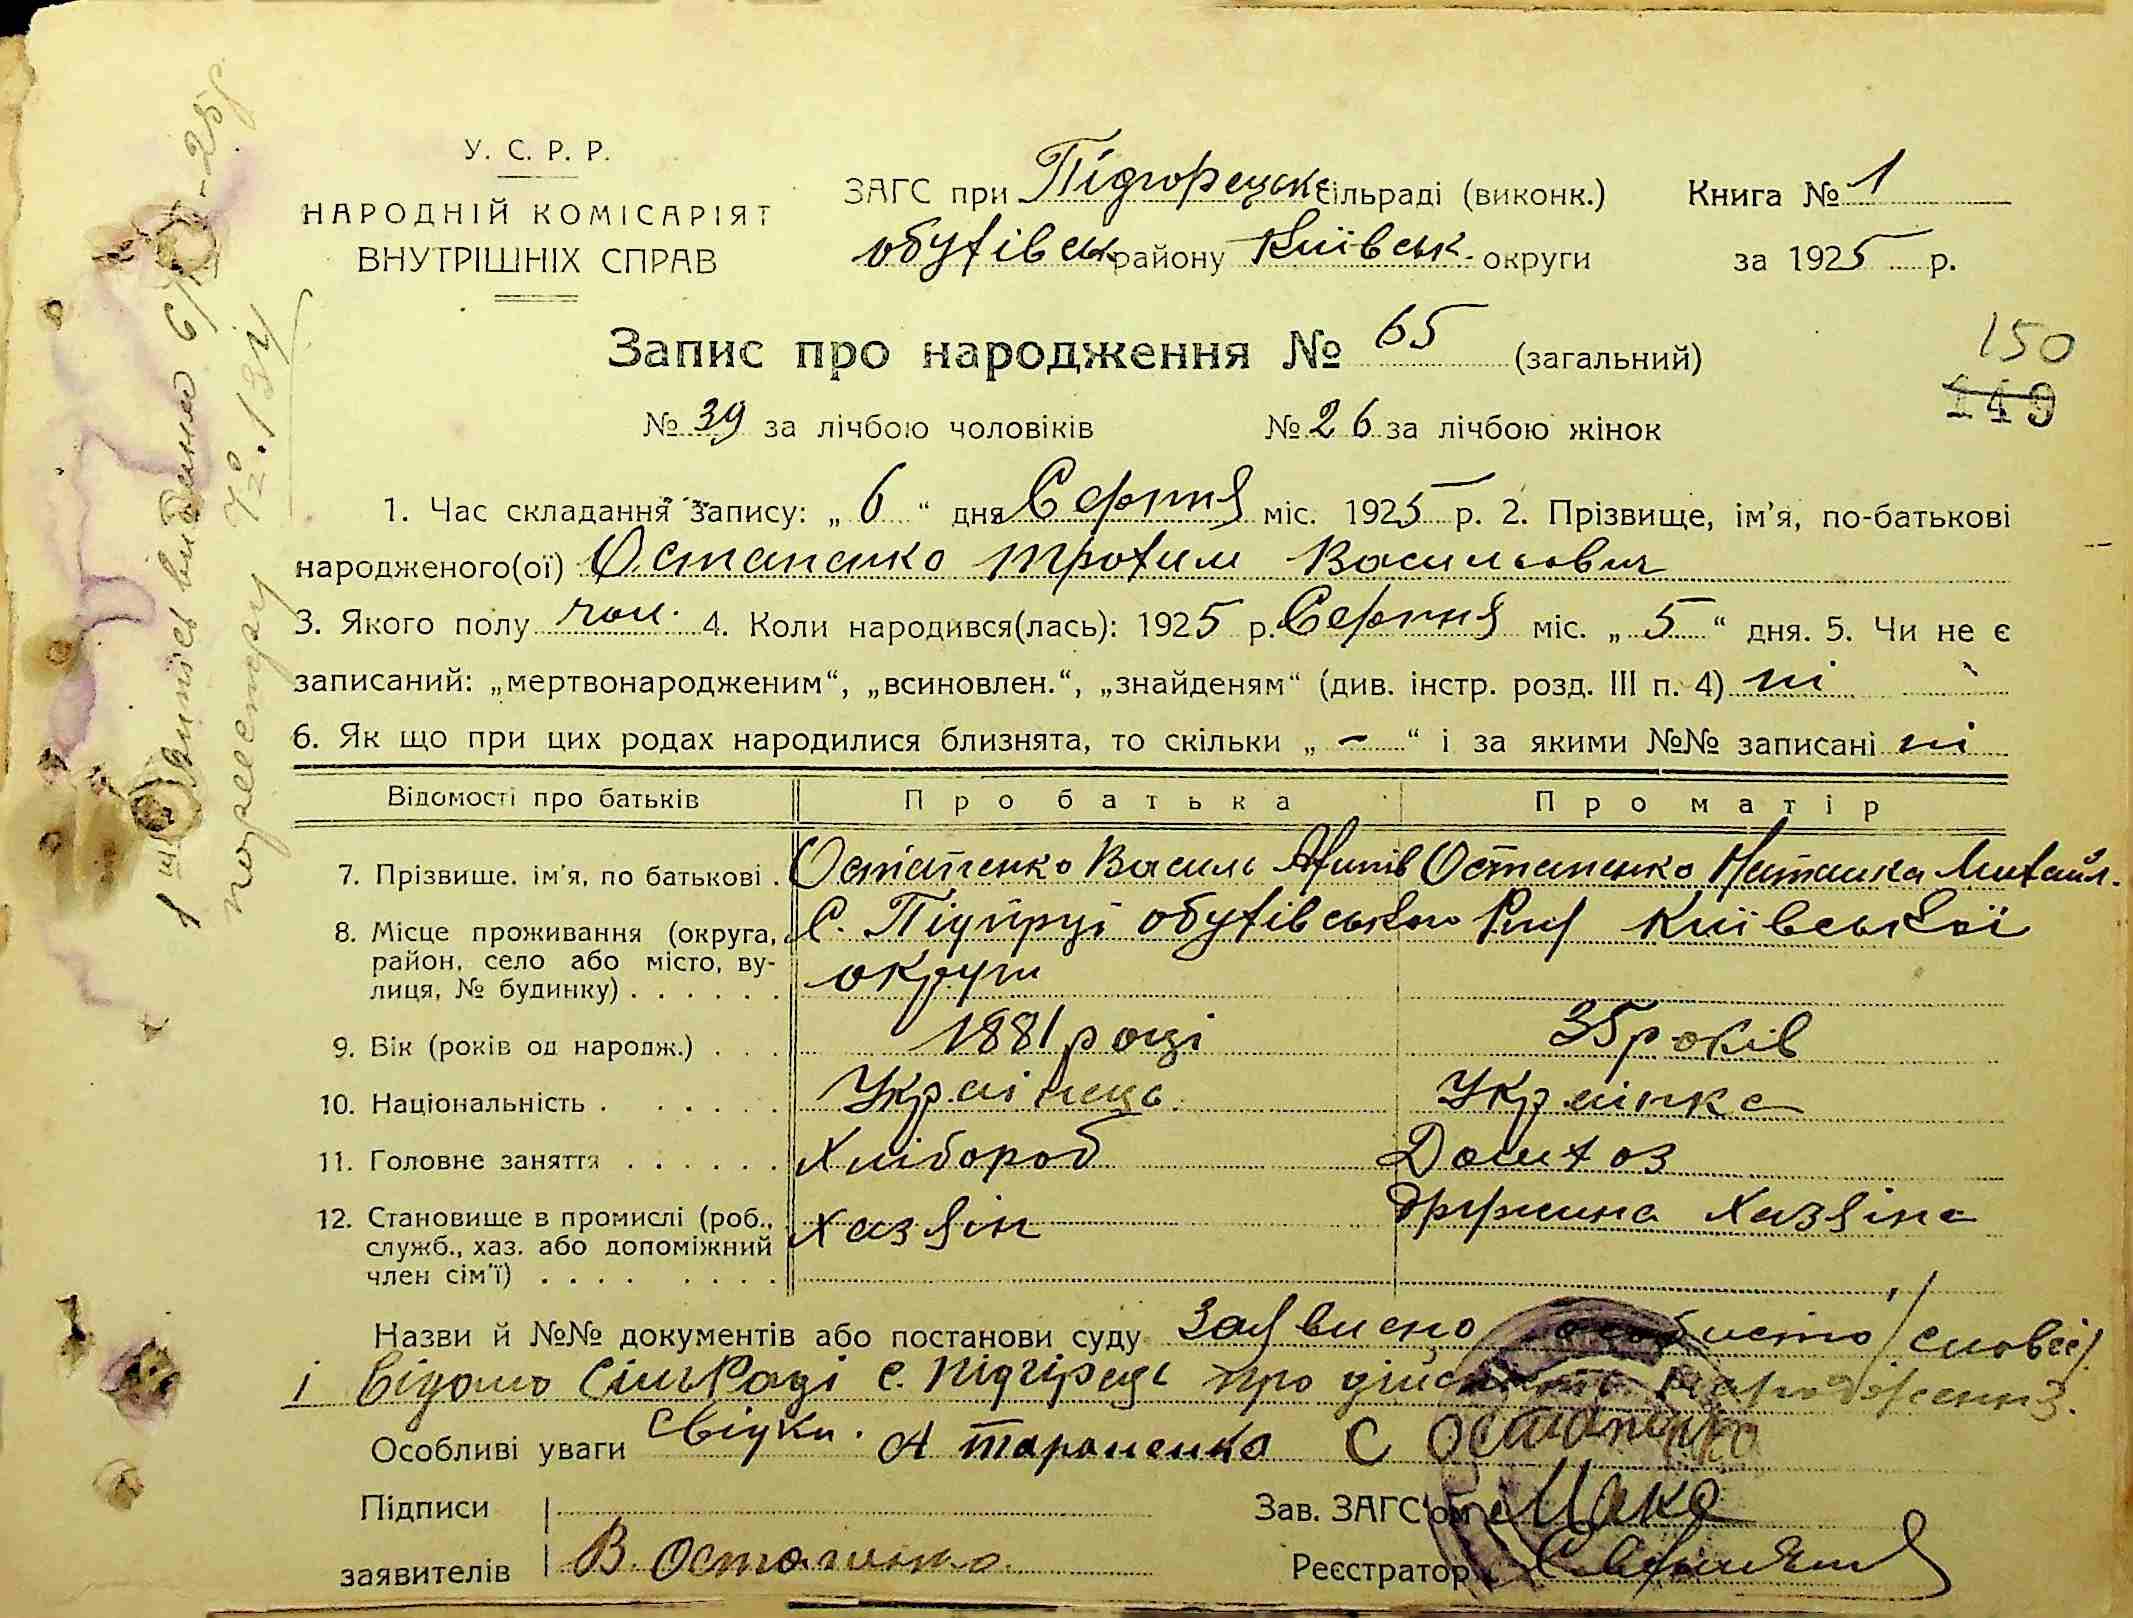 У. С. Р. Р.
НАРОДНІЙ КОМІСАРІЯТ
ВНУТРІШНІХ СПРАВ
ЗАГС при Підгорецьк сільраді (виконк.) Книга № 1
обухівськ району Київськ. округи за 1925 р.
Запис про народження № 65 (загальний)
150
149
№ 39 за лічбою чоловіків № 26 за лічбою жінок
1. Час складання запису: „ 6 “ дня Серпня міс. 1925 р. 2. Прізвище, ім'я, по-батькові
народженого(ої) Остапенко Трохим Васильович
3. Якого полу чол. 4. Коли народився(лась): 1925 р. Серпня міс. „ 5 “ дня. 5. Чи не є
записаний: „мертвонародженим“, „всиновлен.“, „знайденям“ (див. інстр. розд. III п. 4) ні
6. Як що при цих родах народилися близнята, то скільки „ – “ і за якими №№ записані ні
Відомості про батьків Про батька Про матір
7. Прізвище, ім'я, по батькові . Остапенко Василь Остапенко Наталка Михайл.
8. Місце проживання (округа, район, село або місто, вулиця, № будинку) . . . . . . С. Підгірці обухівського Київської
округи
9. Вік (років од народж.) . . . 1881 році 35 років
10. Національність . . . . . . Українець Українка
11. Головне заняття . . . . . . Хлібороб Домхоз
12. Становище в промислі (роб., служб., хаз. або допоміжний член сім'ї) . . . . . . . . Хазяїн дружина хазяїна
Назви й №№ документів або постанови суду Заявлено особисто /словес/
і відомо Сільраді с. Підгірець про дійсність народження.
Особливі уваги свідки. А Тараненко С Остапенко
Підписи Зав. ЗАГС'ом
заявителів В. Остапенко Реєстратор
1 ш Випись видано 6/ -25р
по реєстру № 134